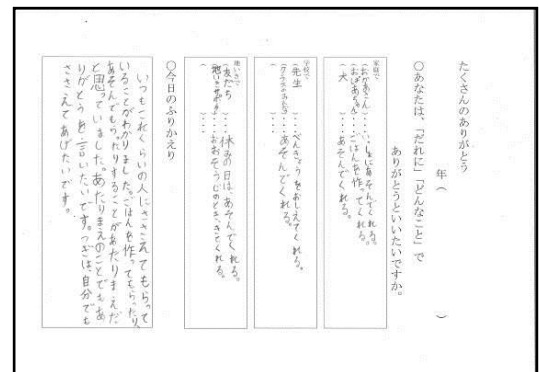 たくさんのありがとう
年( )
○あなたは、「だれに」「どんなこと」で
ありがとうといいたいですか。
家庭で
(おかあさん)・・・いっしょにあそんでくれる。
(おばあちゃん)・・・ごはんを作ってくれる。
(犬)・・・あそんでくれる。
学校で
(先生)・・・べんきょうをおしえてくれる。
(クラスのみんな)・・・あそんでくれる。
( )・・・
地いきで
(友だち)・・・休みの日は、あそんでくれる。
(地いきの)・・・おおそうじのとき、きてくれる。
( )・・・
○今日のふりかえり
いつもこれくらいの人にささえてもらって
いることがわかりました。ごはんを作ってもらったり、
あそんでもらったりすることがあたりまえだ
と思っていました。あたりまえのことでもあ
りがとうを言いたいです。つぎは、自分でも
ささえてあげたいです。